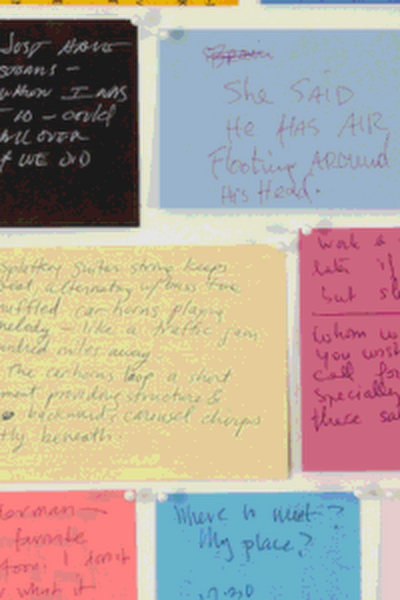 JUST HAVE
WHEN I WAS
10 - could
ALL OVER
WE DID
She SAID
He HAS AIR
Floating AROUND
His Head.
splattery guitar string keeps
beat, alternating w/ bass tone
muffled car horns playing
melody - like a traffic jam
hundred miles away
the carhorns loop a short
providing structure &
backwards carousel chirps
beneath.
work a
late if
but
whom
you wish
call for
specially
these
favorite
I don't
what it
Where to meet?
My place?